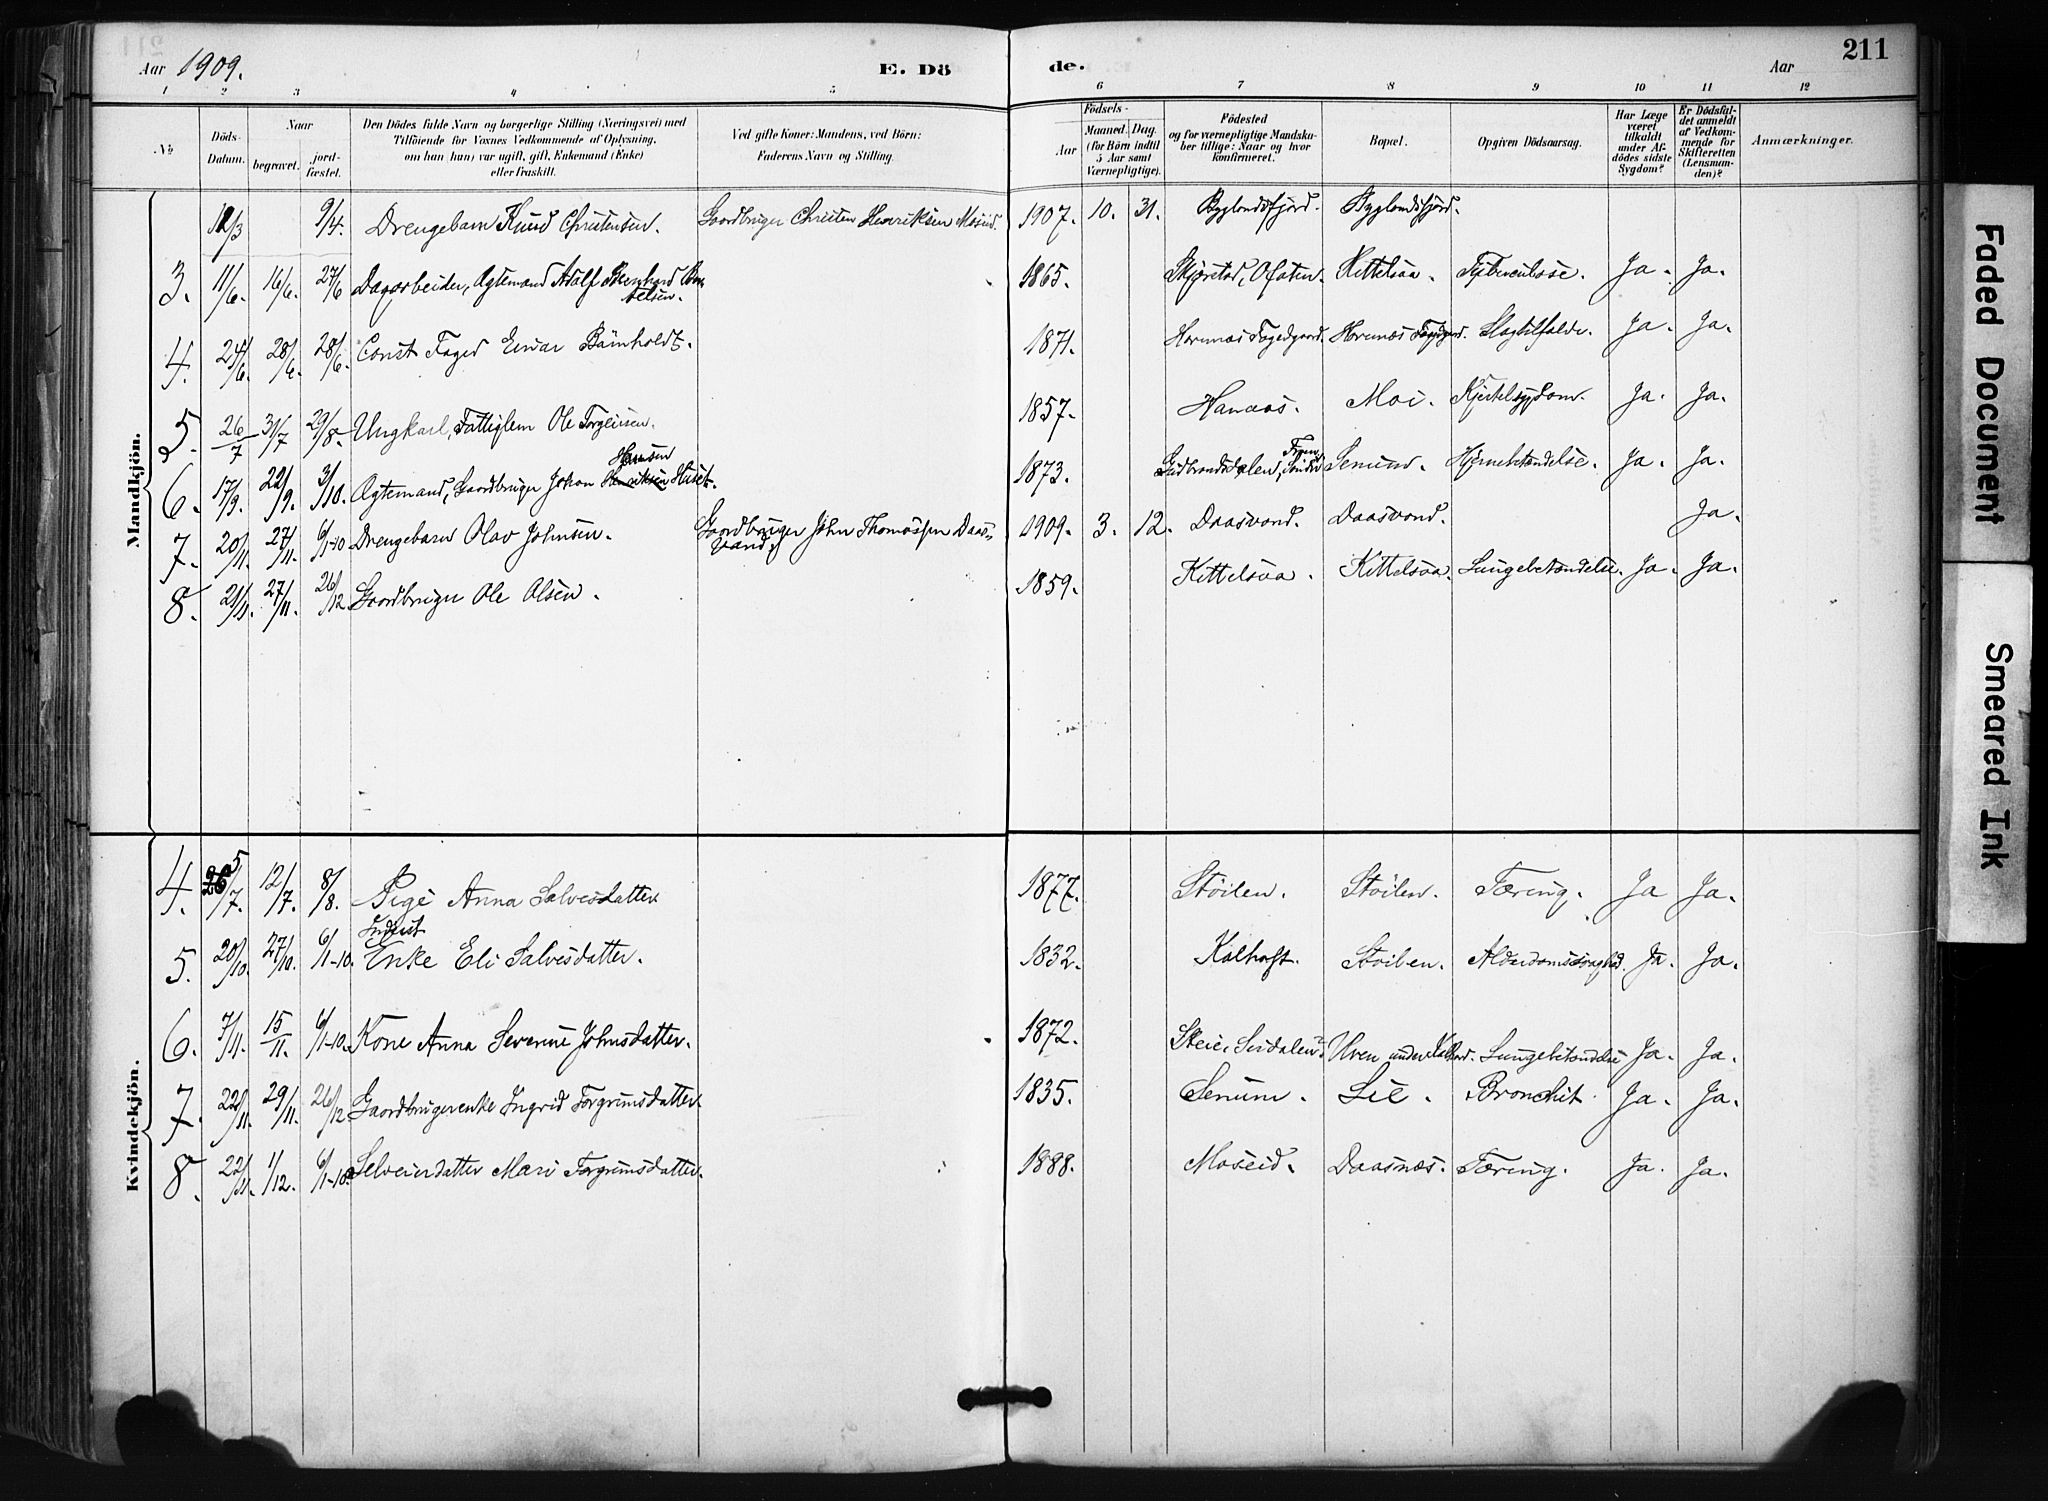 Aar 1909. E. Dö de. Aar 211
1 2 3 4 5 6 7 8 9 10 11 12
No
Döds-
Datum.
Naar
begravet.
jord-
fæstet.
Den Dödes fulde Navn og borgerlige Stilling (Næringsvei) med
Tilföiende for Voxnes Vedkommende af Oplysning,
om han (hun) var ugift, gift, Enkemand (Enke)
eller fraskilt.
Ved gifte Koner: Mandens, ved Börn:
Faderens Navn og Stilling.
Födsels-
Aar
Maaned. Dag.
(for Börn indtil
5 Aar samt
Værnepligtige).
Födested
og for værnepligtige Mandska-
ber tillige: Naar og hvor
konfirmeret.
Bopæl.
Opgiven Dödsaarsag.
Har Læge
været
tilkaldt
under Af-
dödes sidste
Sygdom?
Er Dödsfal-
det anmeldt
af Vedkom-
mende for
Skifteretten
(Lensman-
den)?
Anmærkninger.
Mandkjön.
9/4. Drengebarn Knud Christensen. Gaardbruger Christen Henriksen Moseid. 1907. 10. 31. Byglandsfjord. Byglandsfjord.
3. 11/6. 16/6. 27/6 Dagarbeider, Ægtemand Adolf Bernhard
telsen. 1865. Ofoten. Kittelsaa. Tuberculose. Ja. Ja.
4. 24/6. 28/6. 28/6. Const. Foged Einar Bärnholdt. 1871. Hornnes Fogedgaard. Hornnes Fogedgaard. Slagtilfælde. Ja. Ja.
5. 26/7 31/7 29/8. Ungkarl, Fattiglem Ole Torgeirsen. 1857. Hanaas. Moi. Kjertelsygdom. Ja. Ja.
Hansen
6. 17/9. 22/9. 3/10. Ægtemand, Gaardbruger Johan Henriksen Huset. 1873. Gudbrandsdalen, Senum. Hjernebetændelse. Ja. Ja.
7. 20/11. 27/11. 6/1-10 Drengebarn Olav Johnsen. Gaardbruger John Thomassen Daas-
vand. 1909. 3. 12. Daasvand. Daasvand. Ja.
8. 21/11. 27/11. 26/12. Gaardbruger Ole Olsen. 1859. Kittelsaa. Kittelsaa. Lungebetændelse. Ja. Ja.
Kvindekjön.
4. 5/7. 12/7. 8/8. Pige Anna Salvesdatter 1877. Stöilen. Stöilen. Tæring. Ja Ja.
Inderst
5. 20/10. 27/10. 6/1-10. Enke Eli Salvesdatter. 1832. Kalhoft. Stöilen. Alderdomssvaghed. Ja. Ja.
6. 7/11. 15/11. 6/1-10. Kone Anna Severine Johnsdatter. 1872. Skeie, Sirdalen. Uven under Lungebetændelse Ja. Ja.
7. 22/11. 29/11. 26/12 Gaardbrugerenke Ingrid Torgrimsdatter. 1835. Senum. Lie. Bronchit. Ja. Ja.
8. 22/11. 1/12. 6/1-10. Selveierdatter Mari Torgrimsdatter. 1888. Moseid. Daasnes. Tæring. Ja. Ja.
Faded Document
Smeared Ink